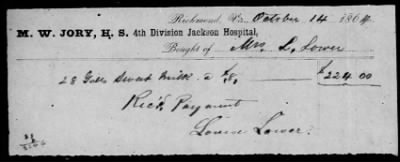 Richmond, Va., October 14 1864
M. W. JORY, H. S. 4th Division Jackson Hospital,
Bought of Mrs. L. Lower
28 Galls Sweet Milk a $8, $224.00
Rec'd Payment
Louisa Lower